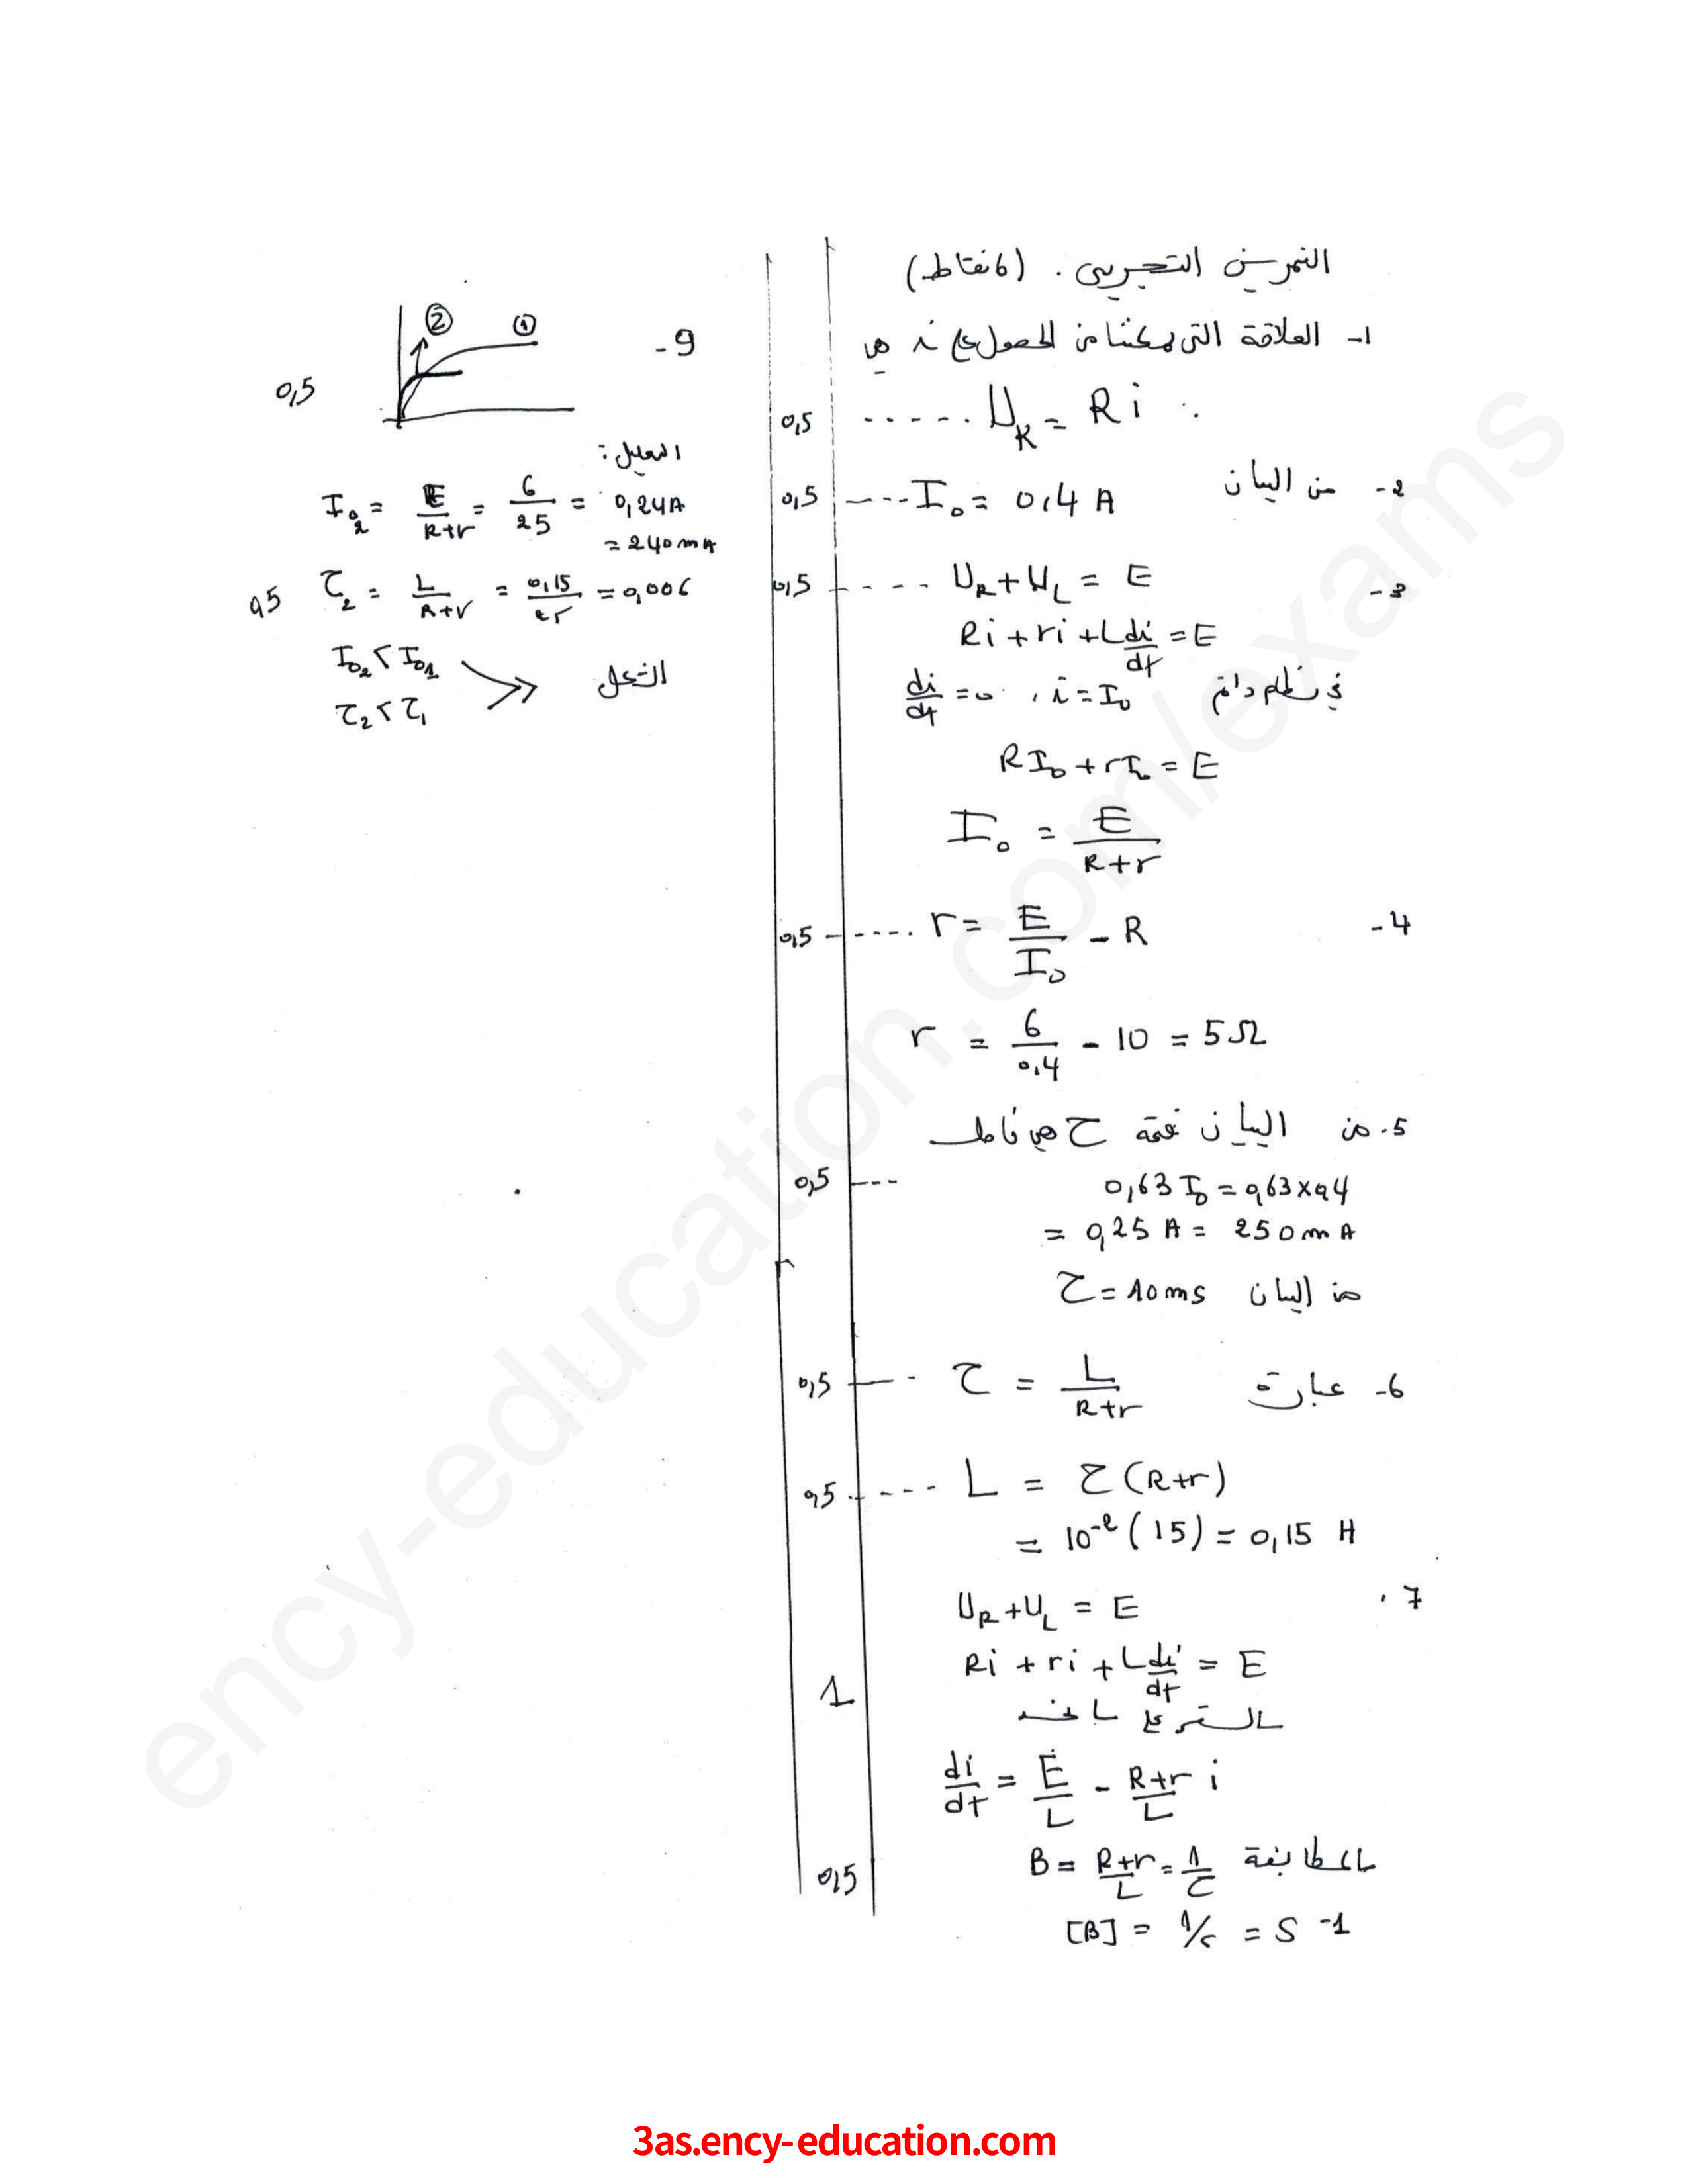 التمرين التجريبي . (6 نقاط)
1- العلاقة التي يمكننا من الحصول على i هي
0,5 ..... U_R = R i
2- من البيان
0,5 ---- I₀ = 0,4 A
3-
0,5 ---- U_R + U_L = E
Ri + ri + L di/dt = E
في نظام دائم i = I₀ ، di/dt = 0
RI₀ + rI₀ = E
I₀ = E/(R+r)
4-
0,5 ---- r = E/I₀ - R
r = 6/0,4 - 10 = 5Ω
5- من البيان قيمة τ هي
0,5 --- 0,63 I₀ = 0,63 x 0,4
= 0,25 A = 250 mA
من البيان τ = 10 ms
6- عبارة
0,5 --- τ = L/(R+r)
0,5 ---- L = τ (R+r)
= 10⁻² (15) = 0,15 H
7.
U_R + U_L = E
Ri + ri + L di/dt = E
1
di/dt = E/L - (R+r)/L i
بالمطابقة B = (R+r)/L = 1/τ
0,5
[B] = 1/s = S⁻¹
9-
② ①
0,5
التعليل :
I₀₂ = E/(R+r) = 6/25 = 0,24 A
= 240 mA
0,5 τ₂ = L/(R+r) = 0,15/25 = 0,006
I₀₂ < I₀₁
τ₂ < τ₁
ency-education.com/exams
3as.ency-education.com